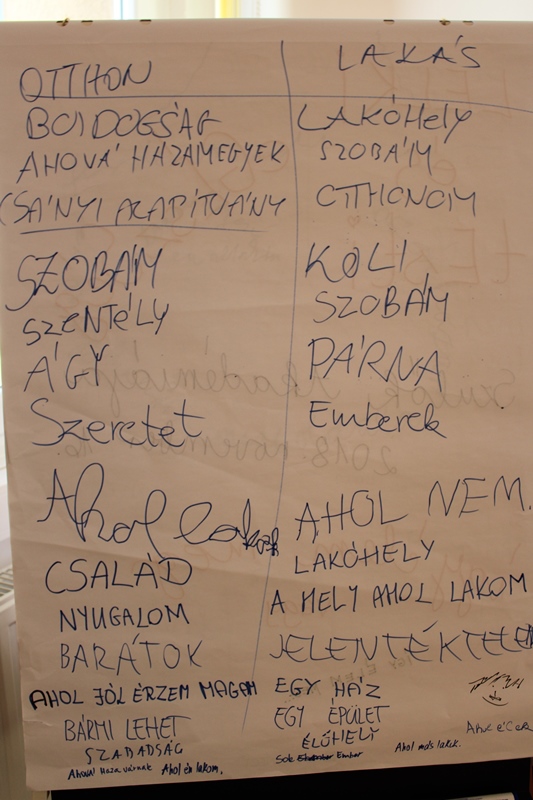 OTTHON
BOLDOGSÁG
AHOVÁ HAZAMEGYEK
CSÁNYI ALAPÍTVÁNY
SZOBÁM
SZENTÉLY
ÁGY
Szeretet
Ahol lakozok
CSALÁD
NYUGALOM
BARÁTOK
AHOL JÓL ÉRZEM MAGAM
BÁRMI LEHET
SZABADSÁG
Ahová Haza várnak Ahol én lakom.
LAKÁS
LAKÓHELY
SZOBÁIM
OTTHONOM
KOLI
SZOBÁM
PÁRNA
Emberek
AHOL NEM.
LAKÓHELY
A HELY AHOL LAKOM
JELENTÉKTELEN
EGY HÁZ
EGY ÉPÜLET
ÉLŐHELY
Sok Ember
Ahol más lakik.